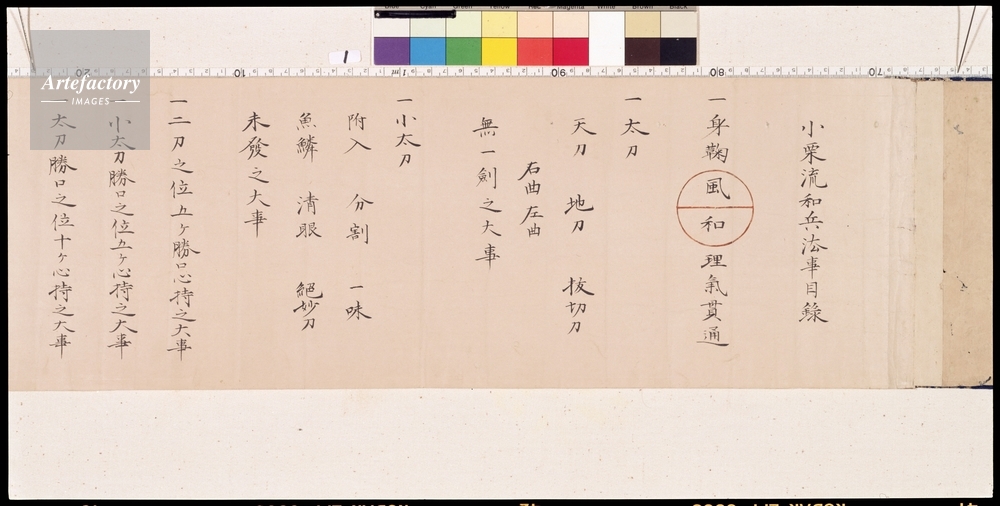 小栗流和兵法事目録
一身鞠風和理氣貫通
一太刀
天刀 地刀 拔切刀
右曲左曲
無一劍之大事
一小太刀
附入 分割 一味
魚鱗 清眼 絕妙刀
未發之大事
一二刀之位五ヶ勝口心持之大事
一小太刀勝口之位五ヶ心持之大事
一太刀勝口之位十ヶ心持之大事
Artefactory
IMAGES
1